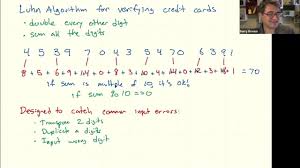 Luhn Algorithm for verifying credit cards
• double every other digit
• sum all the digits
4 5 3 9 7 0 4 0 5 4 70 6 3 9 1
if sum is multiple of 10, it's OK!
if sum % 10 == 0
Designed to catch common input errors:
• Transpose 2 digits
• Duplicate a digits
• Input wrong digit